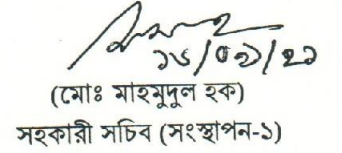 ১৬/০১/২১
(মোঃ মাহমুদুল হক)
সহকারী সচিব (সংস্থাপন-১)